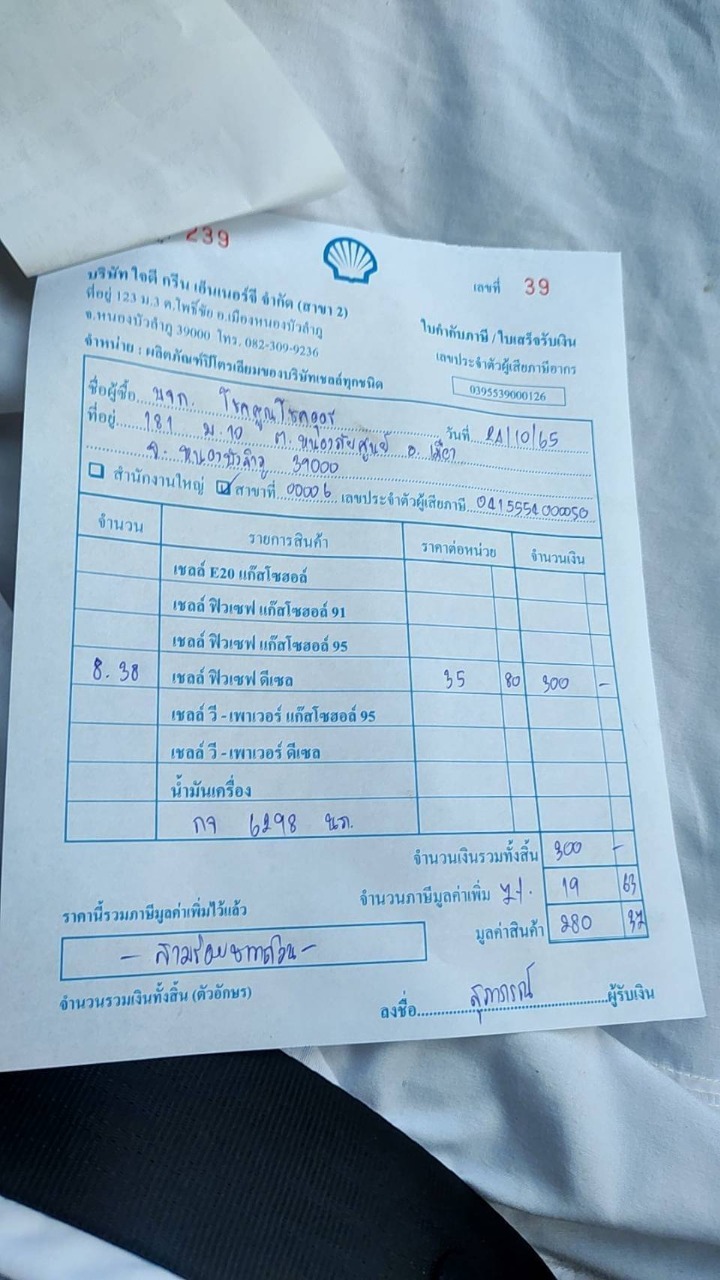 239
เลขที่ 39
บริษัท ใจดี กรีน เอ็นเนอร์จี จำกัด (สาขา 2)
ที่อยู่ 123 ม.3 ต.โพธิ์ชัย อ.เมืองหนองบัวลำภู
จ.หนองบัวลำภู 39000 โทร. 082-309-9236
จำหน่าย : ผลิตภัณฑ์ปิโตรเลียมของบริษัทเชลล์ทุกชนิด
ใบกำกับภาษี / ใบเสร็จรับเงิน
เลขประจำตัวผู้เสียภาษีอากร
0395539000126
ชื่อผู้ซื้อ หจก. วันที่ 21/10/65
ที่อยู่ 181 ม.10 ต. อ.
จ. หนองบัวลำภู 39000
สำนักงานใหญ่ สาขาที่ 00006 เลขประจำตัวผู้เสียภาษี
จำนวน รายการสินค้า ราคาต่อหน่วย จำนวนเงิน
เชลล์ E20 แก๊สโซฮอล์
เชลล์ ฟิวเซฟ แก๊สโซฮอล์ 91
เชลล์ ฟิวเซฟ แก๊สโซฮอล์ 95
8.38 เชลล์ ฟิวเซฟ ดีเซล 35 80 300 -
เชลล์ วี - เพาเวอร์ แก๊สโซฮอล์ 95
เชลล์ วี - เพาเวอร์ ดีเซล
น้ำมันเครื่อง
กจ 6298 นภ.
จำนวนเงินรวมทั้งสิ้น 300 -
จำนวนภาษีมูลค่าเพิ่ม 7%. 19 63
มูลค่าสินค้า 280 37
ราคานี้รวมภาษีมูลค่าเพิ่มไว้แล้ว
- สามร้อยบาทถ้วน -
จำนวนรวมเงินทั้งสิ้น (ตัวอักษร)
ลงชื่อ สุภาภรณ์ ผู้รับเงิน